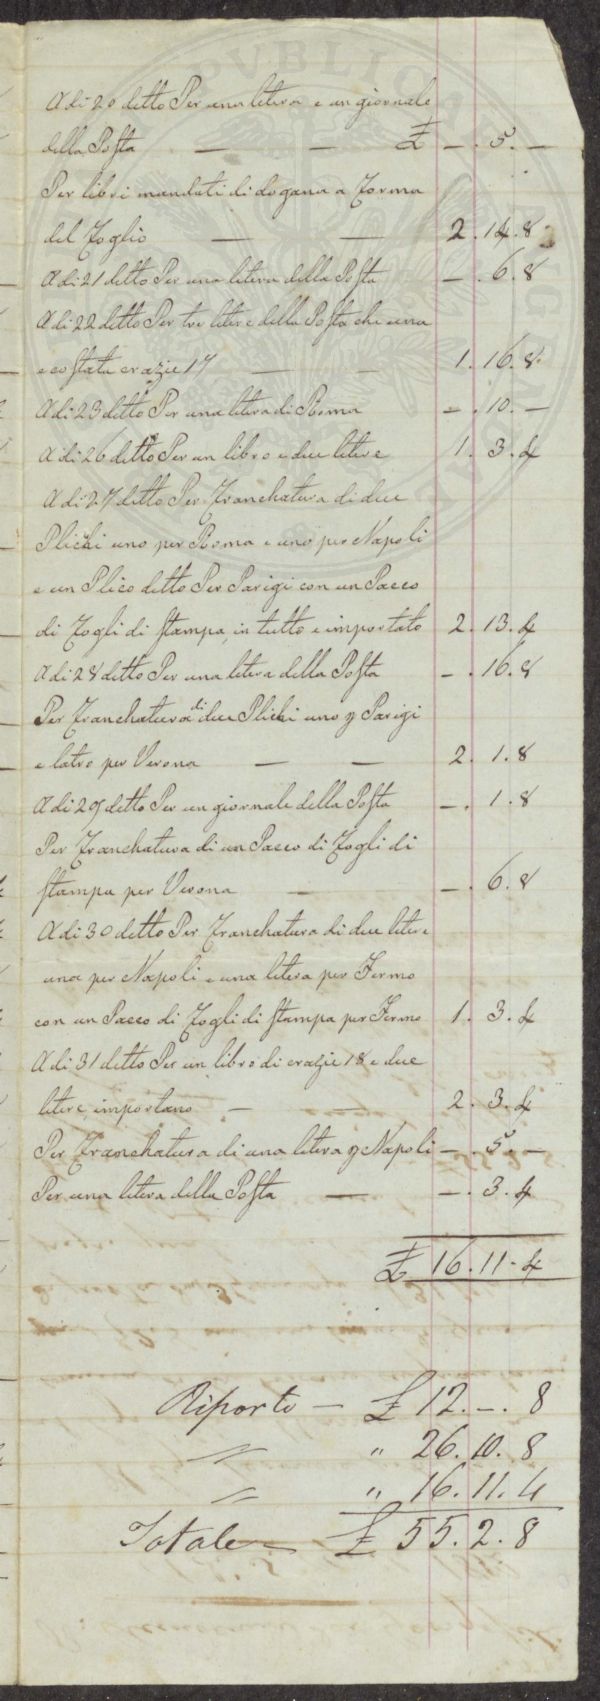 A di 20 ditto Per una litera e un giornale
della Posta — — £ —. 5. —
Per libri mandati di dogana a Forma
del Foglio — — 2. 14. 8
A di 21 ditto Per una litera della Posta —. 6. 8
A di 22 ditto Per tre litere della Posta che una
e costata crazie 17 — — 1. 16. 8
A di 23 ditto Per una litera di Roma —. 10. —
A di 26 ditto Per un libro e due litere 1. 3. 4
A di 27 ditto Per Franchatura di due
Plichi uno per Roma e uno per Napoli
e un Plico ditto Per Parigi con un Pacco
di Fogli di Stampa, in tutto e importato 2. 13. 4
A di 28 ditto Per una litera della Posta —. 16. 8
Per Franchatura di due Plichi uno p Parigi
e latro per Verona — — 2. 1. 8
A di 29 ditto Per un giornale della Posta —. 1. 8
Per Franchatura di un Pacco di Fogli di
Stampa per Verona — —. 6. 8
A di 30 ditto Per Franchatura di due litere
una per Napoli e una litera per Fermo
con un Pacco di Fogli di Stampa per Fermo 1. 3. 4
A di 31 ditto Per un libro di crazie 18 e due
litere importano — — 2. 3. 4
Per Franchatura di una litera p Napoli —. 5. —
Per una litera della Posta — —. 3. 4
£ 16. 11. 4
Riporto — £ 12. —. 8
〃 〃 26. 10. 8
〃 〃 16. 11. 4
Totale — £ 55. 2. 8